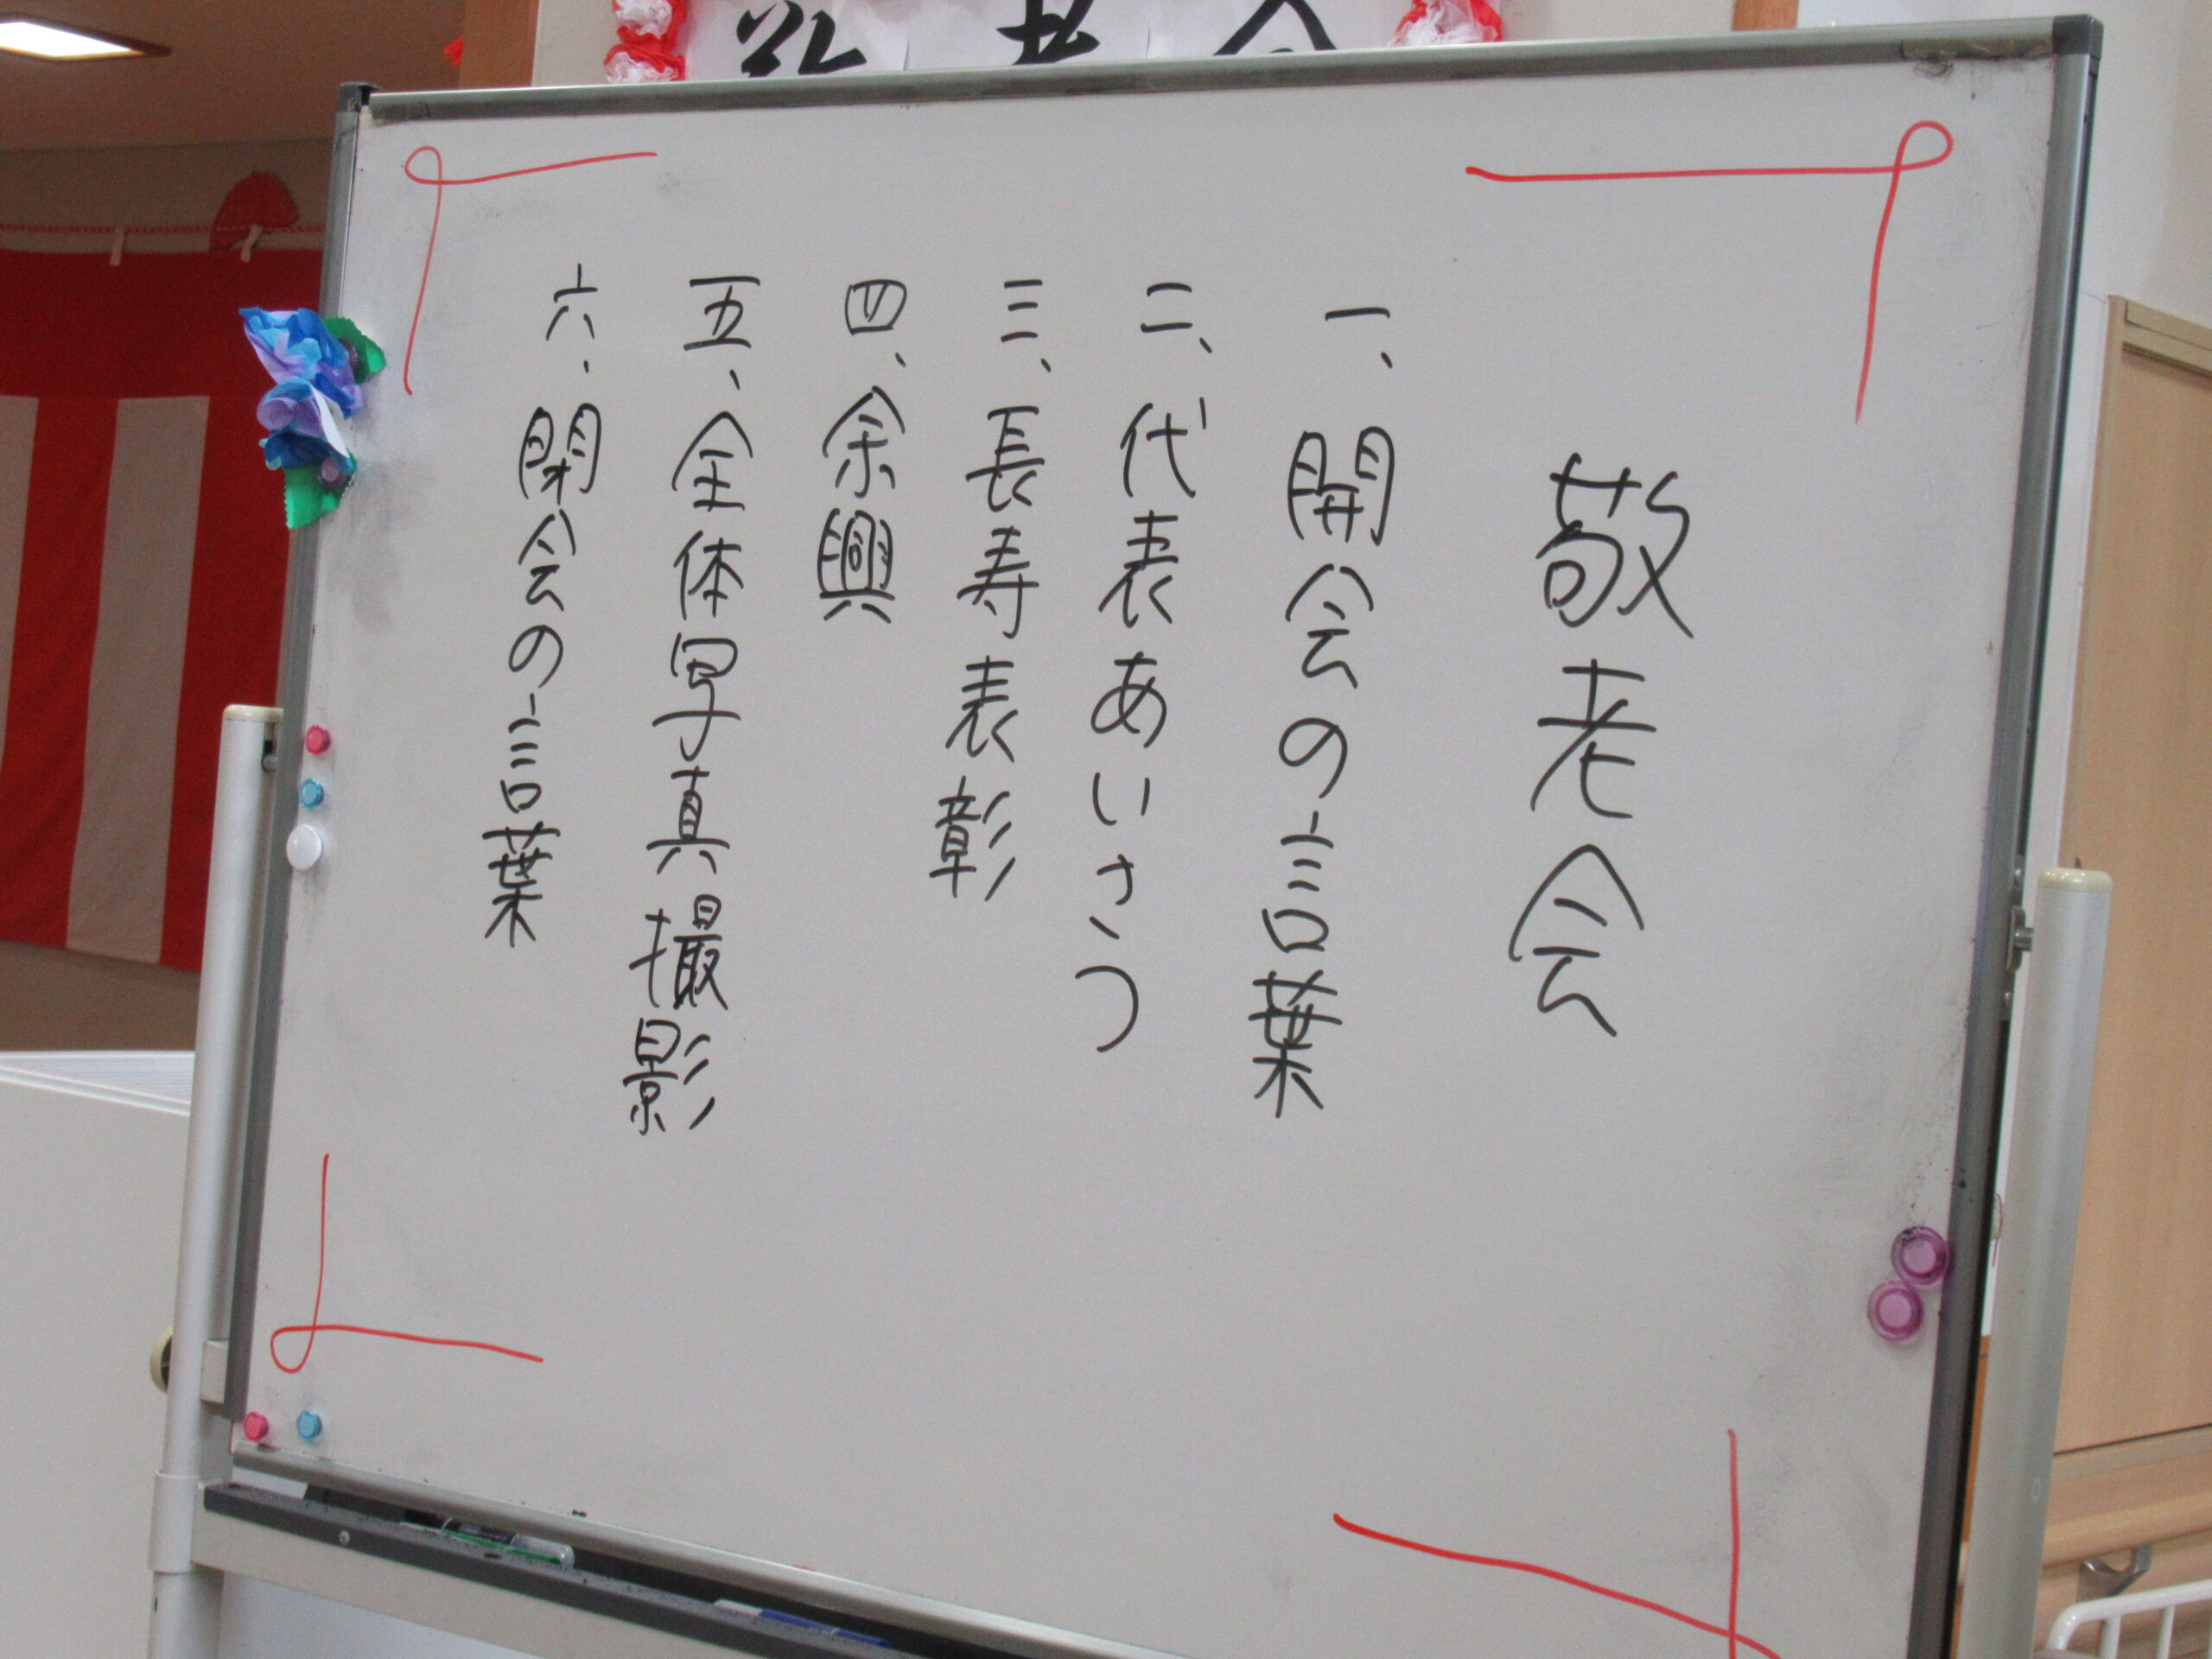 敬老会
一、開会の言葉
二、代表あいさつ
三、長寿表彰
四、余興
五、全体写真撮影
六、閉会の言葉